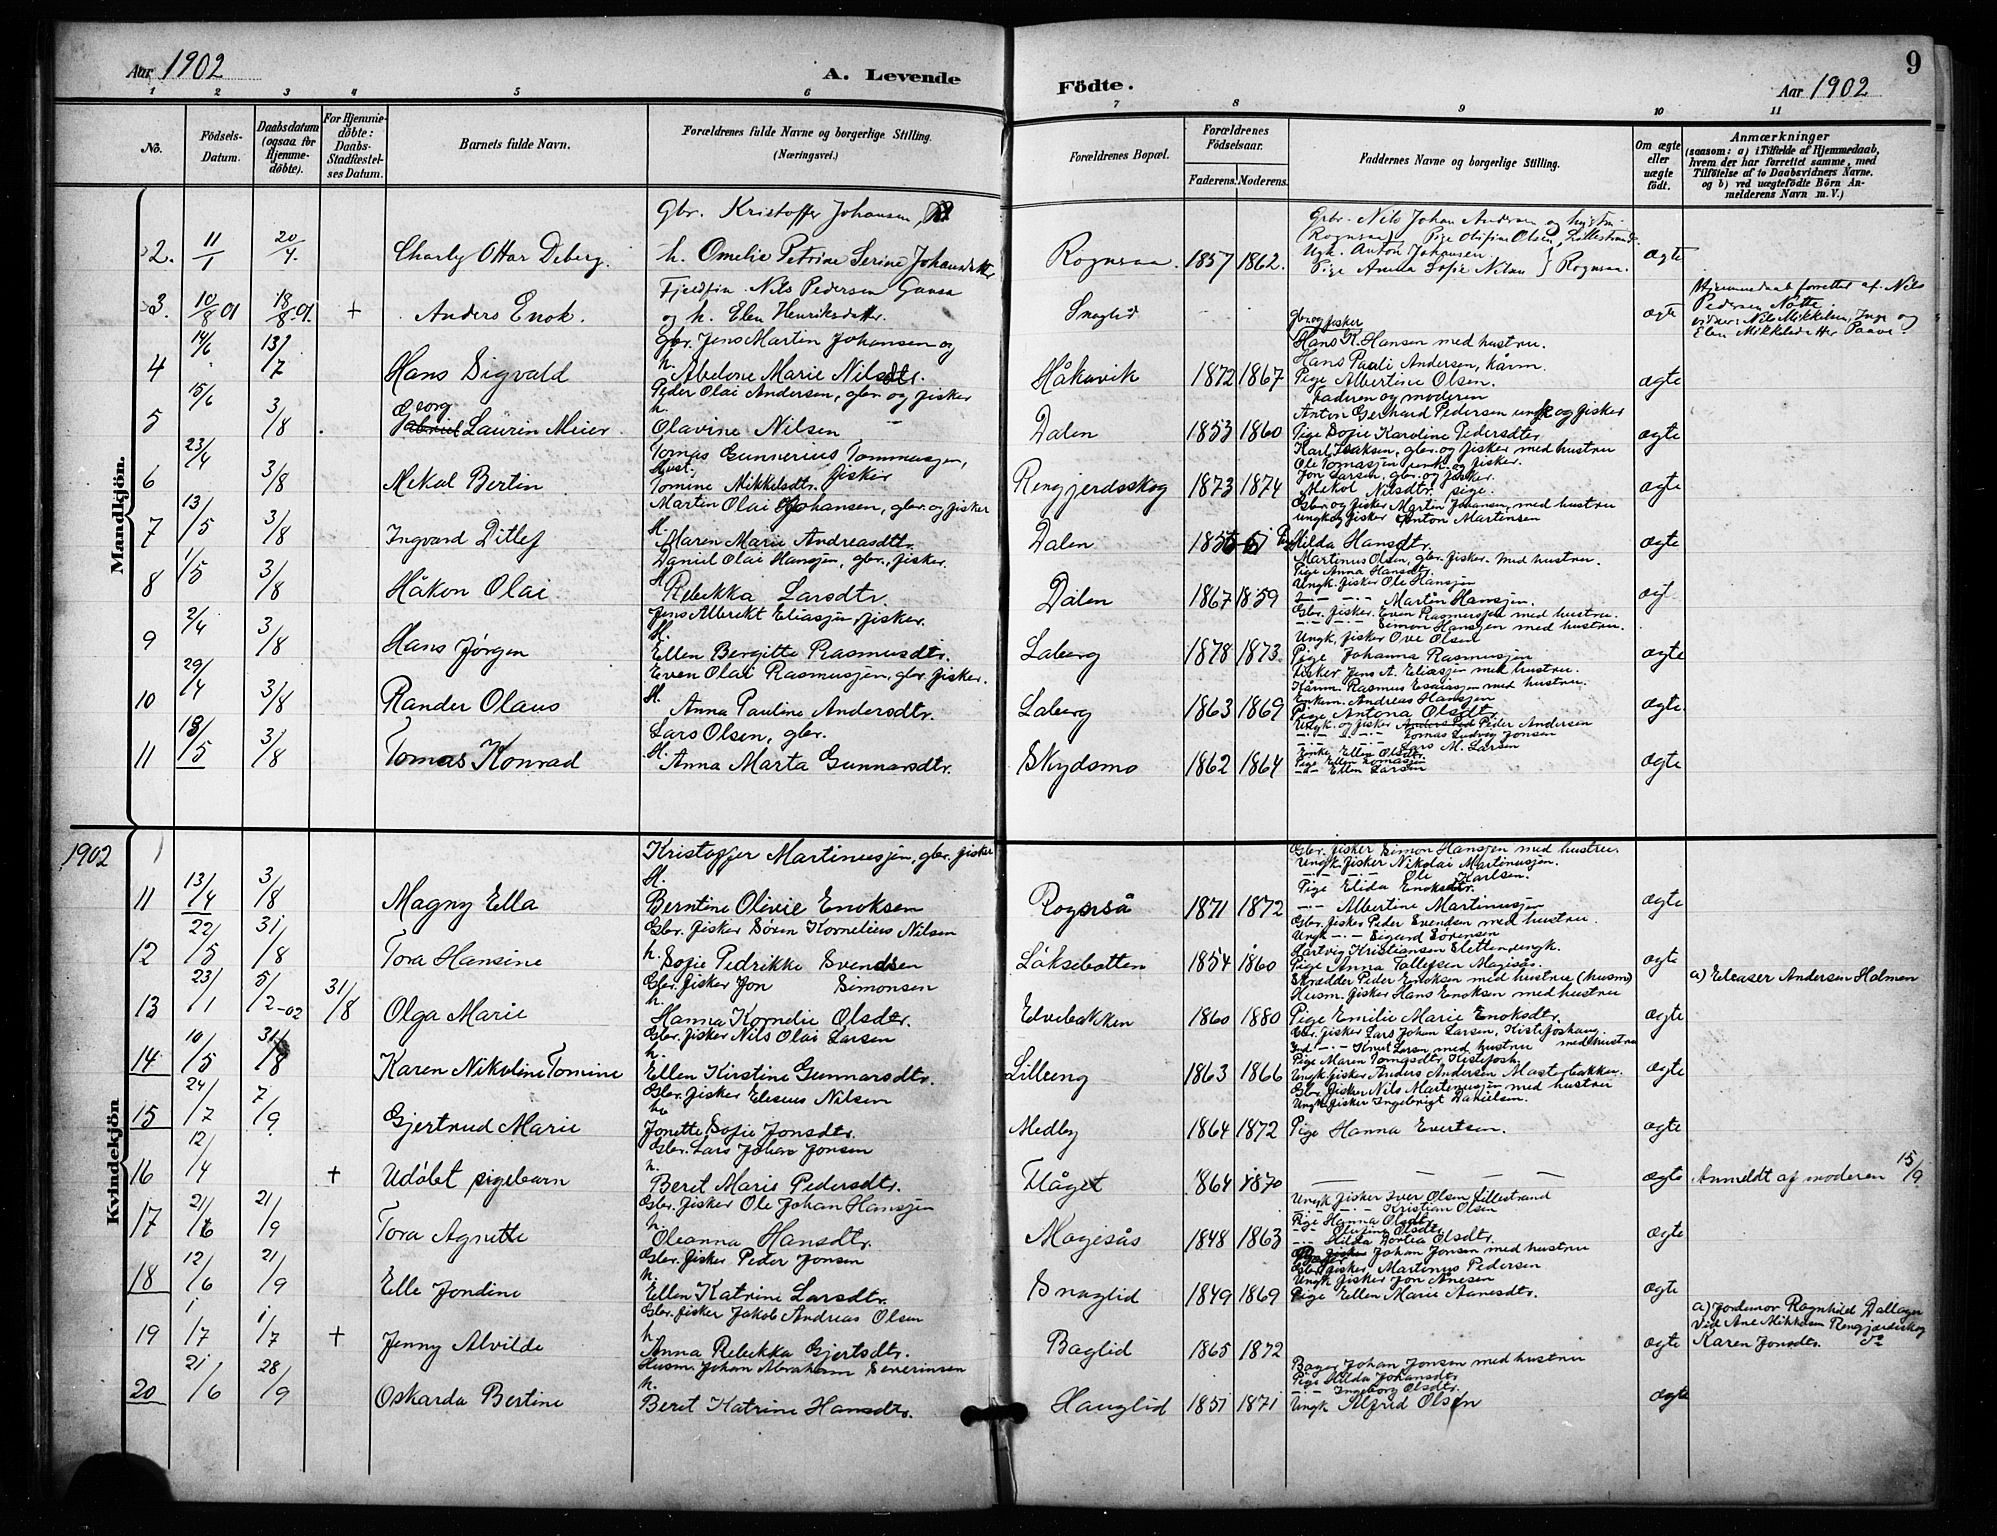 Aar 1902
A. Levende
Födte.
Aar 1902
9
1 2 3 4 5 6 7 8 9 10 11
No.
Födsels-Datum.
Daabsdatum (ogsaa for Hjemmedöbte).
For Hjemmedöbte: Daabs-Stadfæstelses Datum.
Barnets fulde Navn.
Forældrenes fulde Navne og borgerlige Stilling. (Næringsvei.)
Forældrenes Bopæl.
Forældrenes Födselsaar.
Faderens. Moderens.
Faddernes Navne og borgerlige Stilling.
Om ægte eller uægte födt.
Anmærkninger (saasom: a) i Tilfælde af Hjemmedaab, hvem der har forrettet samme, med Tilföielse af to Daabsvidners Navne. og b) ved uægtefödte Börn Anmelderens Navn m. V.)
Mandkjön.
Gbr. Kristoffer Johansen
2. 11/1 20/4. Charly Ottar Deberg. h. Omelie Petrine Serine Johansdatter Rognsaa. 1857 1862.
Gbr. Nils Johan Andersen og hustru
Rognsaa, Pige Olufine Olsen, Lillestrand.
Ugk. Anton Johansen
Pige Anna Sofie Nilsen } Rognsaa. ægte
Fjeldfin. Nils Pedersen Gausa
3. 10/8 01 18/8 01. + Anders Enok. og h. Elen Henriksdatter. Snoglid - - ægte
Hjemmedaab forrettet af Nils
Pedersen Nötte.
vidner: Nils Mikkelsen, Inga og
Elen Mikkelsdatter Paave.
Gbr. Jens Martin Johansen og
4 14/6 13/7 Hans Sigvald h. Abelone Marie Nilsdtr. Håkavik 1872 1867
Gbr. og fisker
Hans K. Hansen med hustru.
Hans Pauli Andersen, kårm.
Pige Albertine Olsen.
Faderen og moderen ægte
Peder Olai Andersen, gbr. og fisker
5 15/6 3/8 Georg Gabriel Laurin Meier h. Olavine Nilsen Dalen 1853 1860
Anton Gerhard Pedersen ungk og fisker
Pige Sofie Karoline Pedersdtr.
Karl Isaksen, gbr. og fisker med hustru ægte
Tomas Gunnerius Tommasjen, fisker
6 23/4 3/8 Mekal Bertin Hust. Tomine Mikkelsdtr. Rengjerdsskog 1873 1874
Ole Tomasjen unk. og fisker.
Jon Larsen. gbr. og fisker.
Mekol Nilsdtr. pige. ægte
Martin Olai Johansen, gbr. og fisker
7 13/5 3/8 Ingvard Ditlef H. Maren Marie Andreasdtr. Dalen 1856 61
Gbr. og fisker Martin Johansen, med hustru
ungk og fisker Anton Martinsen
Pige Hilda Hansdtr. ægte
Daniel Olai Hansjen, gbr., fisker.
8 1/5 3/8 Håkon Olai H. Rebekka Larsdtr. Dalen 1867 1859
Martinus Olsen, gbr. fisker. med hustru.
Pige Anna Hansdtr.
Ungk. fisker Ole Hansjen
- - - Martin Hansjen.
Jens Albrikt Eliasjen, fisker.
9 2/4 3/8 Hans Jørgen H. Ellen Bergitte Rasmusdtr. Laberg 1878 1873.
Gbr. fisker. Even Rasmusjen med hustru.
- - - Simon Hansjen med hustru.
Ungk. fisker Ove Olsen
Pige Johanna Rasmusjen ægte
Even Olai Rasmusjen, gbr. fisker.
10 29/4 3/8 Rander Olaus H. Anna Pauline Andersdtr. Laberg 1863 1869
Fisker Jens A. Eliasjen med hustru.
Kårm. Rasmus Esaiasjen med hustru.
Enkem. Andreas Hansjen
Pige Antona Olsdtr. ægte.
Lars Olsen, gbr.
11 13/5 3/8 Tomas Konrad H. Anna Marta Gunnarsdtr. Skydsmo 1862 1864
Ungk. og fisker Peder Andersen
- - - Tomas Ludvig Jonsen
- - - Lars M. Larsen
Enke Ellen Olsdtr.
Pige Ellen Tomasjen
- - Ellen Larsen ægte
1902
Kvindekjön
Kristoffer Martinusjen, gbr. fisker
11 13/4 3/8 Magny Ella H. Berntine Olivie Enoksen Rognså 1871 1872
Gbr. fisker Simon Hansjen med hustru.
Ungk. fisker Nikolai Martinusjen.
- - - Ole Karlsen.
Pige Elida Enoksdtr.
- - Albertine Martinusjen ægte
Gbr. fisker Sören Kornelius Nilsen
12 22/5 31/8 Tora Hansine h. Sofie Pedrikke Svendsen Låksebotten 1854 1860
Gbr. fisker Peder Svendsen med hustru.
Ungk - - Sigurd Sörensen
Hartvig Kristiansen Sletten ungk.
Pige Anna Tollefsen Mogesås. ægte
Gbr. fisker Jon Simonsen
13 23/1 5/2-02 31/8 Olga Marie h. Hanna Kornelie Olsdtr. Elvebakken 1860 1880
Skrædder Peder Enoksen med hustru (husm)
Husm. fisker Hans Enoksen med hustru
Pige Emilie Marie Enoksdtr. ægte
a) Eleaser Andersen Holmen
Gbr. fisker Nils Olai Larsen
14 10/5 31/8 Karen Nikoline Tomine h. Ellen Kirstine Gunnarsdtr. Lilleeng 1863 1866
Gbr. fisker Lars Johan Larsen, Kistefoshaug. med hustru
Ind. - - Knut Larsen med hustru
Pige Maren Tomasdtr. Kistefosh.
Ungk. fisker Anders Andersen Masterbakken. ægte
Gbr. fisker Eliseus Nilsen
15 24/7 7/9 Gjertrud Marie h. Jonette Sofie Jonsdtr. Medby 1864 1872
Gbr. fisker Nils Martinusjen med hustru
Ungk fisker Ingebrigt Danielsen.
Pige Hanna Evertsen. ægte
Gbr. Lars Johan Jonsen
16 12/4 + Udöbt pigebarn h. Beret Marie Pedersdtr. Flåget 1864 1870 — — — ægte Anmeldt af moderen 15/9
Gbr. fisker Ole Johan Hansjen
17 21/6 21/9 Tora Agnette h. Oleanna Hansdtr. Mogesås 1848 1863
Ungk fisker Iver Olsen Lillestrand
- - - Kristian Olsen
Pige Hanna Olsdtr.
- - Olufine Olsdtr.
- - Hilda Dortea Olsdtr. ægte
Gbr. fisker Peder Jonsen
18 12/6 21/9 Elle Jondine h. Ellen Katrine Larsdtr. Snoglid 1849 1869
Johan Jonsen med hustru
Gbr. fisker Martinus Pedersen
Ungk fisker Jon Ånesen
Pige Ellen Marie Aanesdtr. ægte
Gbr. fisker Jakob Andreas Olsen
19 1/7 1/7 + Jenny Alvilde h. Anna Rebekka Gjertsdtr. Baglid 1865 1872 ægte
a) Jordemor Ragnhild Dallager
Vid Ane Mikkelsen Rengjærdeskog
Karen Jonsdtr. do
Husm. Johan Abraham Severinsen
20 21/6 28/9 Oskarda Bertine h. Beret Katrine Hansdtr. Hauglid 1851 1871
Bager Johan Jonsen med hustru
Pige Hilda Johansdtr
- - Ingeborg Olsdtr.
Ungk Alfred Olsen ægte